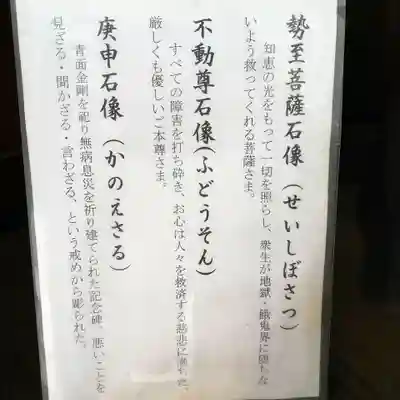 勢至菩薩石像（せいしぼさつ）
知恵の光をもって一切を照らし、衆生が地獄・餓鬼界に堕ちな
いよう救ってくれる菩薩さま。
不動尊石像（ふどうそん）
すべての障害を打ち砕き、お心は人々を救済する慈悲に満ちた、
厳しくも優しいご本尊さま。
庚申石像（かのえさる）
青面金剛を祀り無病息災を祈り建てられた記念碑。悪いことを
見ざる・聞かざる・言わざる、という戒めから彫られた。